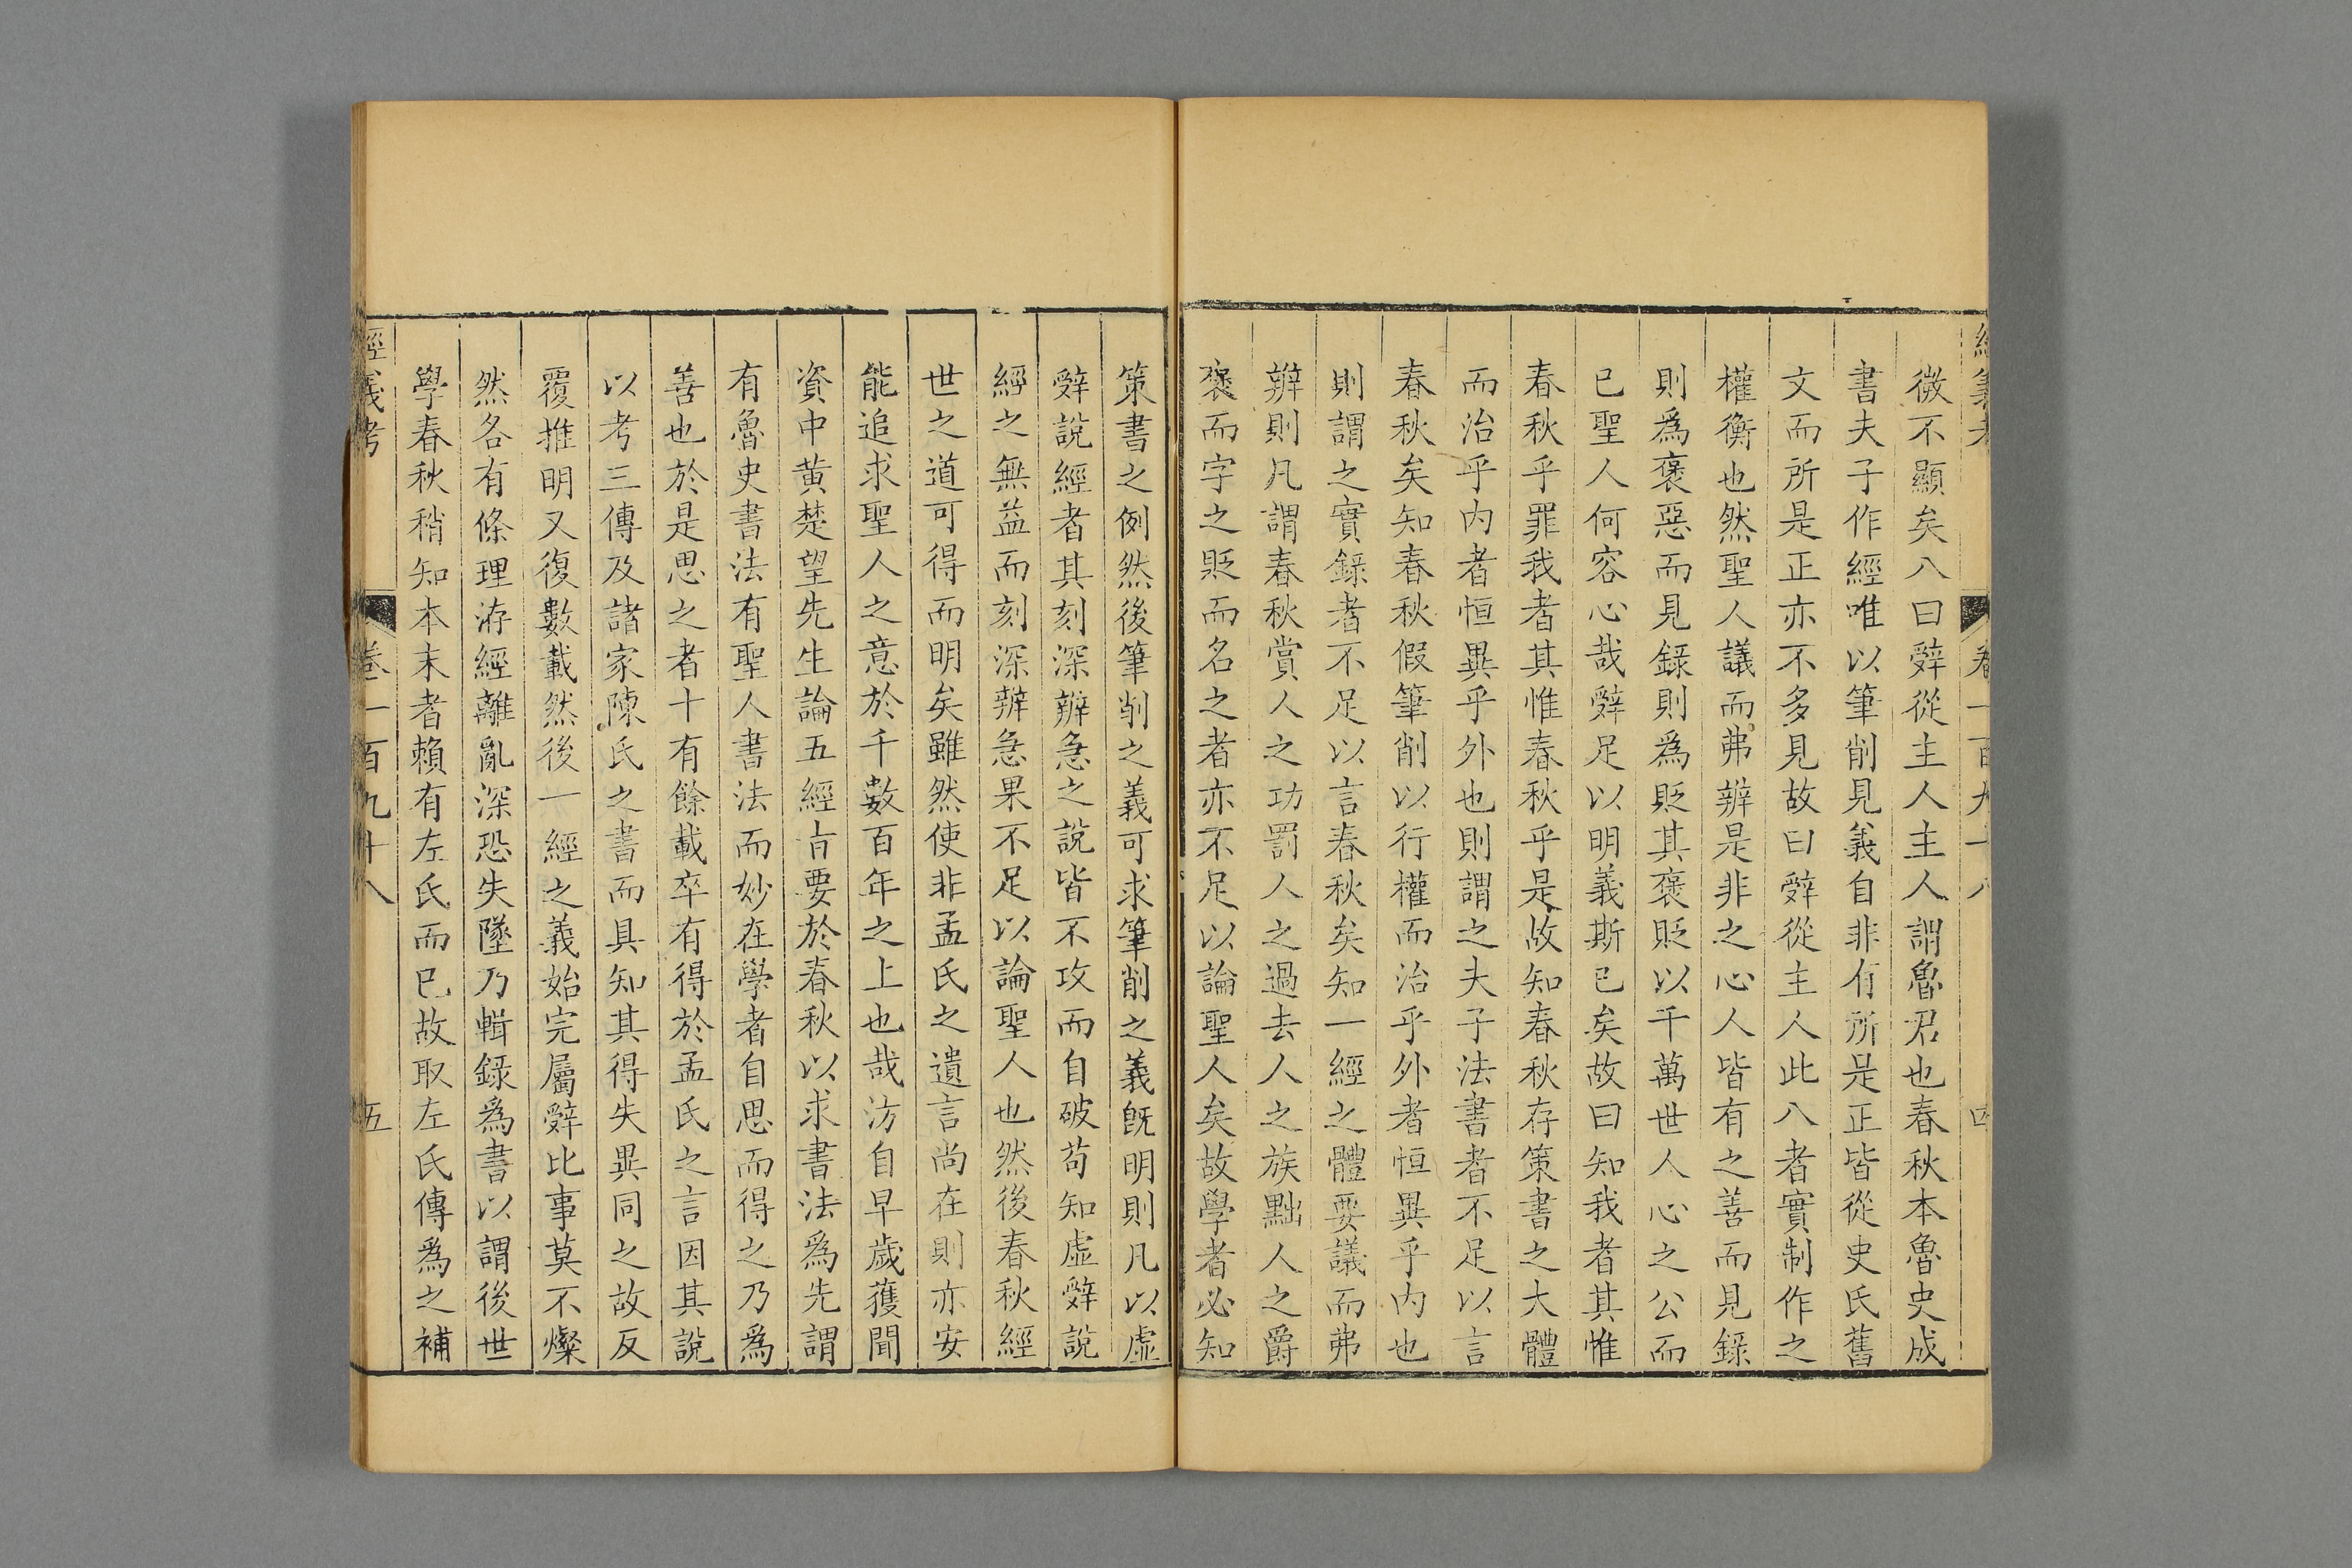 微不顯矣八曰辭從主人主人謂魯君也春秋本魯史成
書夫子作經唯以筆削見義自非有所是正皆從史氏舊
文而所是正亦不多見故曰辭從主人此八者實制作之
權衡也然聖人議而弗辨是非之心人皆有之善而見錄
則爲褒惡而見錄則爲貶其褒貶以千萬世人心之公而
已聖人何容心哉辭足以明義斯已矣故曰知我者其惟
春秋乎罪我者其惟春秋乎是故知春秋存策書之大體
而治乎内者恒異乎外也則謂之夫子法書者不足以言
春秋矣知春秋假筆削以行權而治乎外者恒異乎内也
則謂之實錄者不足以言春秋矣知一經之體要議而弗
辨則凡謂春秋賞人之功罰人之過去人之族黜人之爵
褒而字之貶而名之者亦不足以論聖人矣故學者必知
策書之例然後筆削之義可求筆削之義旣明則凡以虛
辭說經者其刻深辨急之說皆不攻而自破苟知虛辭說
經之無益而刻深辨急果不足以論聖人也然後春秋經
世之道可得而明矣雖然使非孟氏之遺言尚在則亦安
能追求聖人之意於千數百年之上也哉汸自早歲獲聞
資中黄楚望先生論五經旨要於春秋以求書法爲先謂
有魯史書法有聖人書法而妙在學者自思而得之乃爲
善也於是思之者十有餘載卒有得於孟氏之言因其說
以考三傳及諸家陳氏之書而具知其得失異同之故反
覆推明又復數載然後一經之義始完屬辭比事莫不燦
然各有條理洊經離亂深恐失墜乃輯錄爲書以謂後世
學春秋稍知本末者賴有左氏而已故取左氏傳爲之補
經義考 卷一百九十八 五